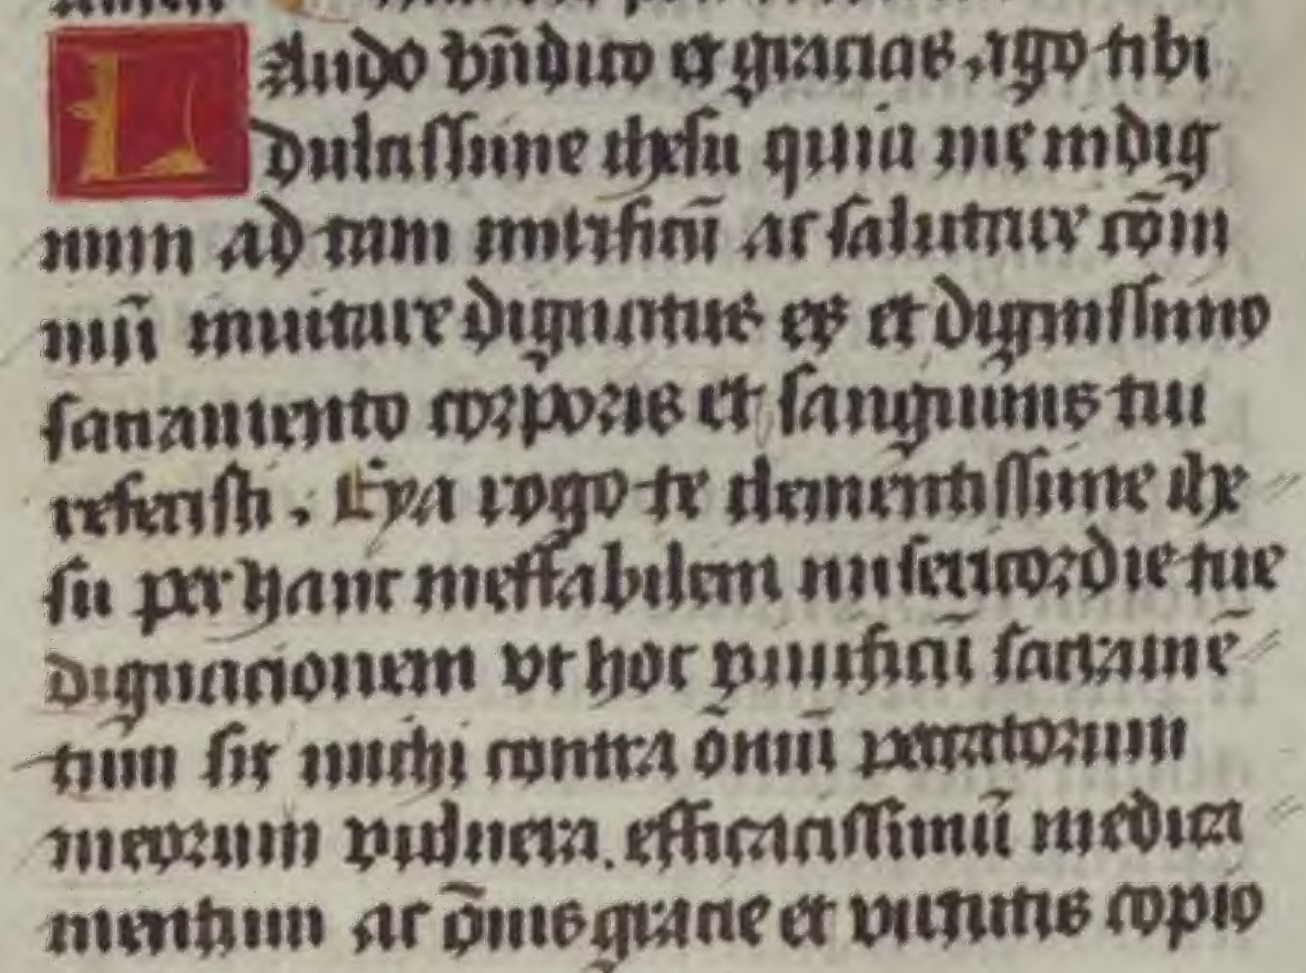 LAudo bn̄dico et gracias ago tibi
dulcissime ihesu quia me indig
num ad tam mirificū ac salutare cōm
niū inuitare dignatus es et dignissimo
sacramento corporis et sanguinis tui
refecisti. Eya rogo te clementissime ihe
su per hanc ineffabilem misericordie tue
dignacionem vt hoc viuificū sacramē
tum sit michi contra ōniū peccatorum
meorum vulnera. efficacissimū medica
mentum ac ōnis gracie et virtutis copio